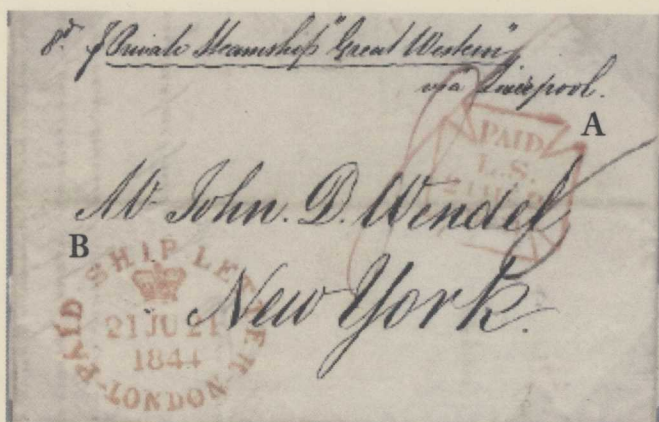 8d. p Private Steamship "Great Western"
via Liverpool.
A
PAID
L.S.
Mr John. D. Wendel
B
New York.
PAID SHIP LETTER LONDON
21 JU 21
1844